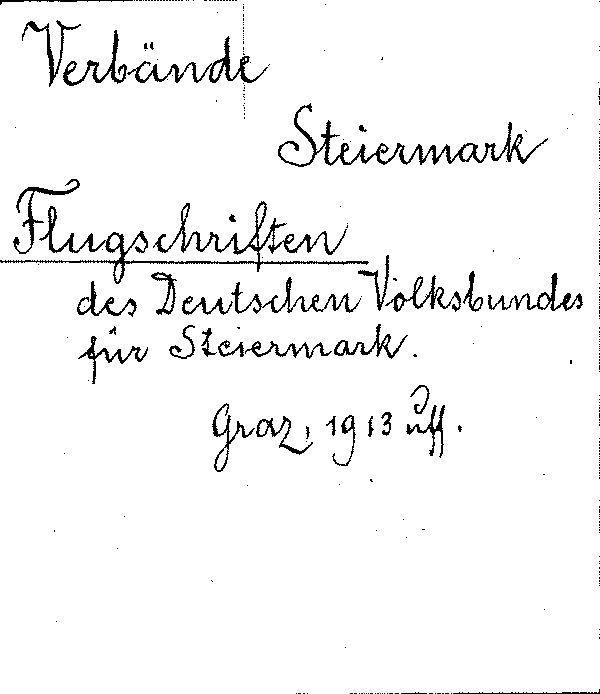 Verbände
Steiermark
Flugschriften
des Deutschen Volksbundes
für Steiermark.
Graz, 1913 uff.